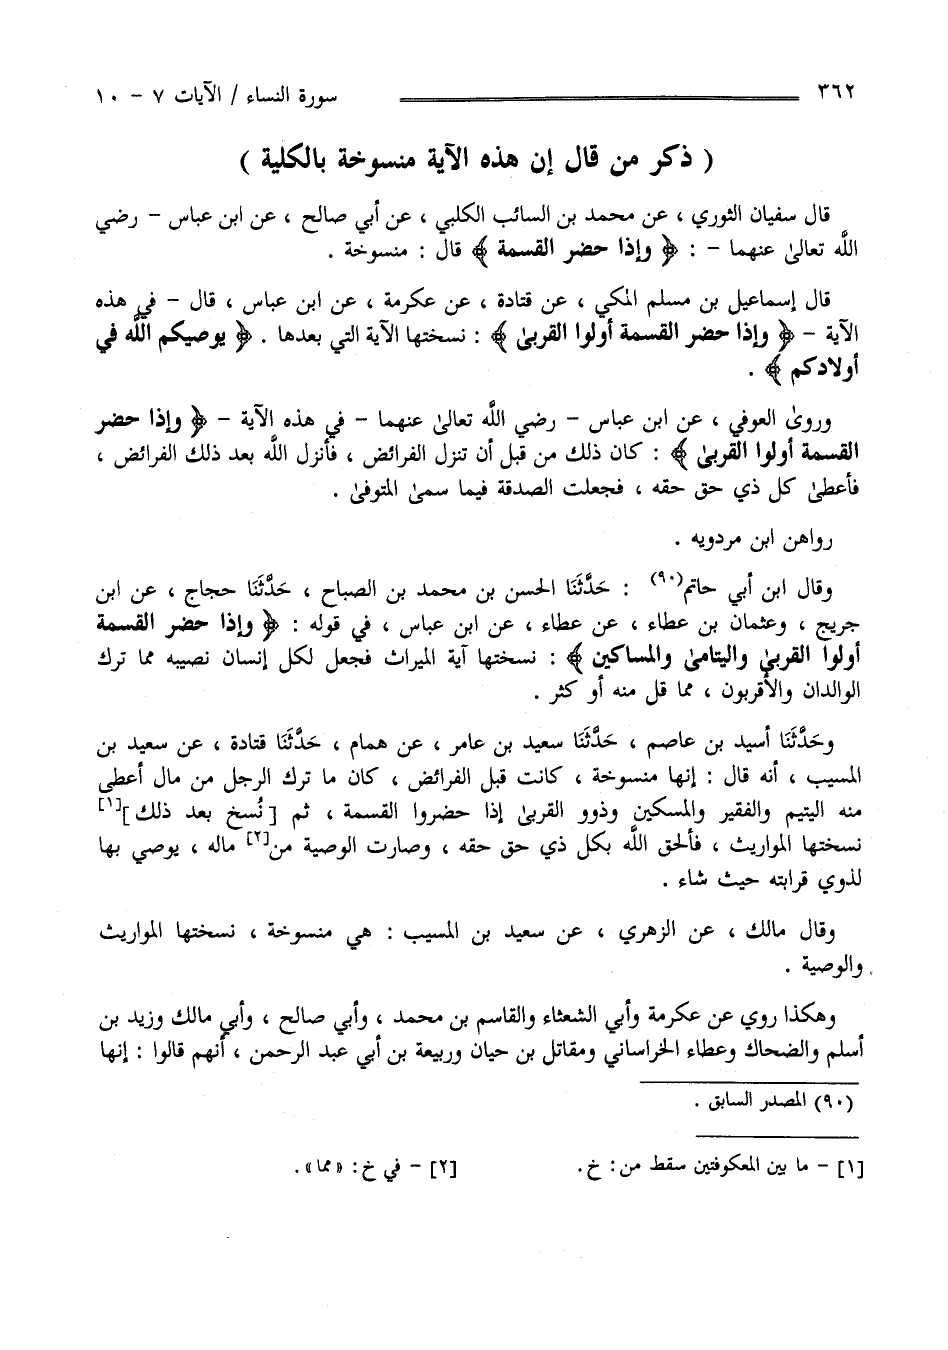 ٣٦٢ سورة النساء / الآيات ٧ - ١٠
( ذكر من قال إن هذه الآية منسوخة بالكلية )
قال سفيان الثوري ، عن محمد بن السائب الكلبي ، عن أبي صالح ، عن ابن عباس - رضي
اللَّه تعالىٰ عنهما - : ﴿ وإذا حضر القسمة ﴾ قال : منسوخة .
قال إسماعيل بن مسلم المكي ، عن قتادة ، عن عكرمة ، عن ابن عباس ، قال - في هذه
الآية - ﴿ وإذا حضر القسمة أولوا القربىٰ ﴾ : نسختها الآية التي بعدها . ﴿ يوصيكم اللَّه في
أولادكم ﴾ .
وروىٰ العوفي ، عن ابن عباس - رضي اللَّه تعالىٰ عنهما - في هذه الآية - ﴿ وإذا حضر
القسمة أولوا القربىٰ ﴾ : كان ذلك من قبل أن تنزل الفرائض ، فأنزل اللَّه بعد ذلك الفرائض ،
فأعطىٰ كل ذي حق حقه ، فجعلت الصدقة فيما سمىٰ المتوفىٰ .
رواهن ابن مردويه .
وقال ابن أبي حاتم(٩٠) : حَدَّثَنَا الحسن بن محمد بن الصباح ، حَدَّثَنَا حجاج ، عن ابن
جريج ، وعثمان بن عطاء ، عن عطاء ، عن ابن عباس ، في قوله : ﴿ وإذا حضر القسمة
أولوا القربىٰ واليتامىٰ والمساكين ﴾ : نسختها آية الميراث فجعل لكل إنسان نصيبه مما ترك
الوالدان والأقربون ، مما قل منه أو كثر .
وحَدَّثَنَا أسيد بن عاصم ، حَدَّثَنَا سعيد بن عامر ، عن همام ، حَدَّثَنَا قتادة ، عن سعيد بن
المسيب ، أنه قال : إنها منسوخة ، كانت قبل الفرائض ، كان ما ترك الرجل من مال أعطى
منه اليتيم والفقير والمسكين وذوو القربىٰ إذا حضروا القسمة ، ثم [ نُسخ بعد ذلك ][١]
نسختها المواريث ، فألحق اللَّه بكل ذي حق حقه ، وصارت الوصية من[٢] ماله ، يوصي بها
لذوي قرابته حيث شاء .
وقال مالك ، عن الزهري ، عن سعيد بن المسيب : هي منسوخة ، نسختها المواريث
والوصية .
وهكذا روي عن عكرمة وأبي الشعثاء والقاسم بن محمد ، وأبي صالح ، وأبي مالك وزيد بن
أسلم والضحاك وعطاء الخراساني ومقاتل بن حيان وربيعة بن أبي عبد الرحمن ، أنهم قالوا : إنها
(٩٠) المصدر السابق .
[١] - ما بين المعكوفتين سقط من: خ. [٢] - في خ: «مما».